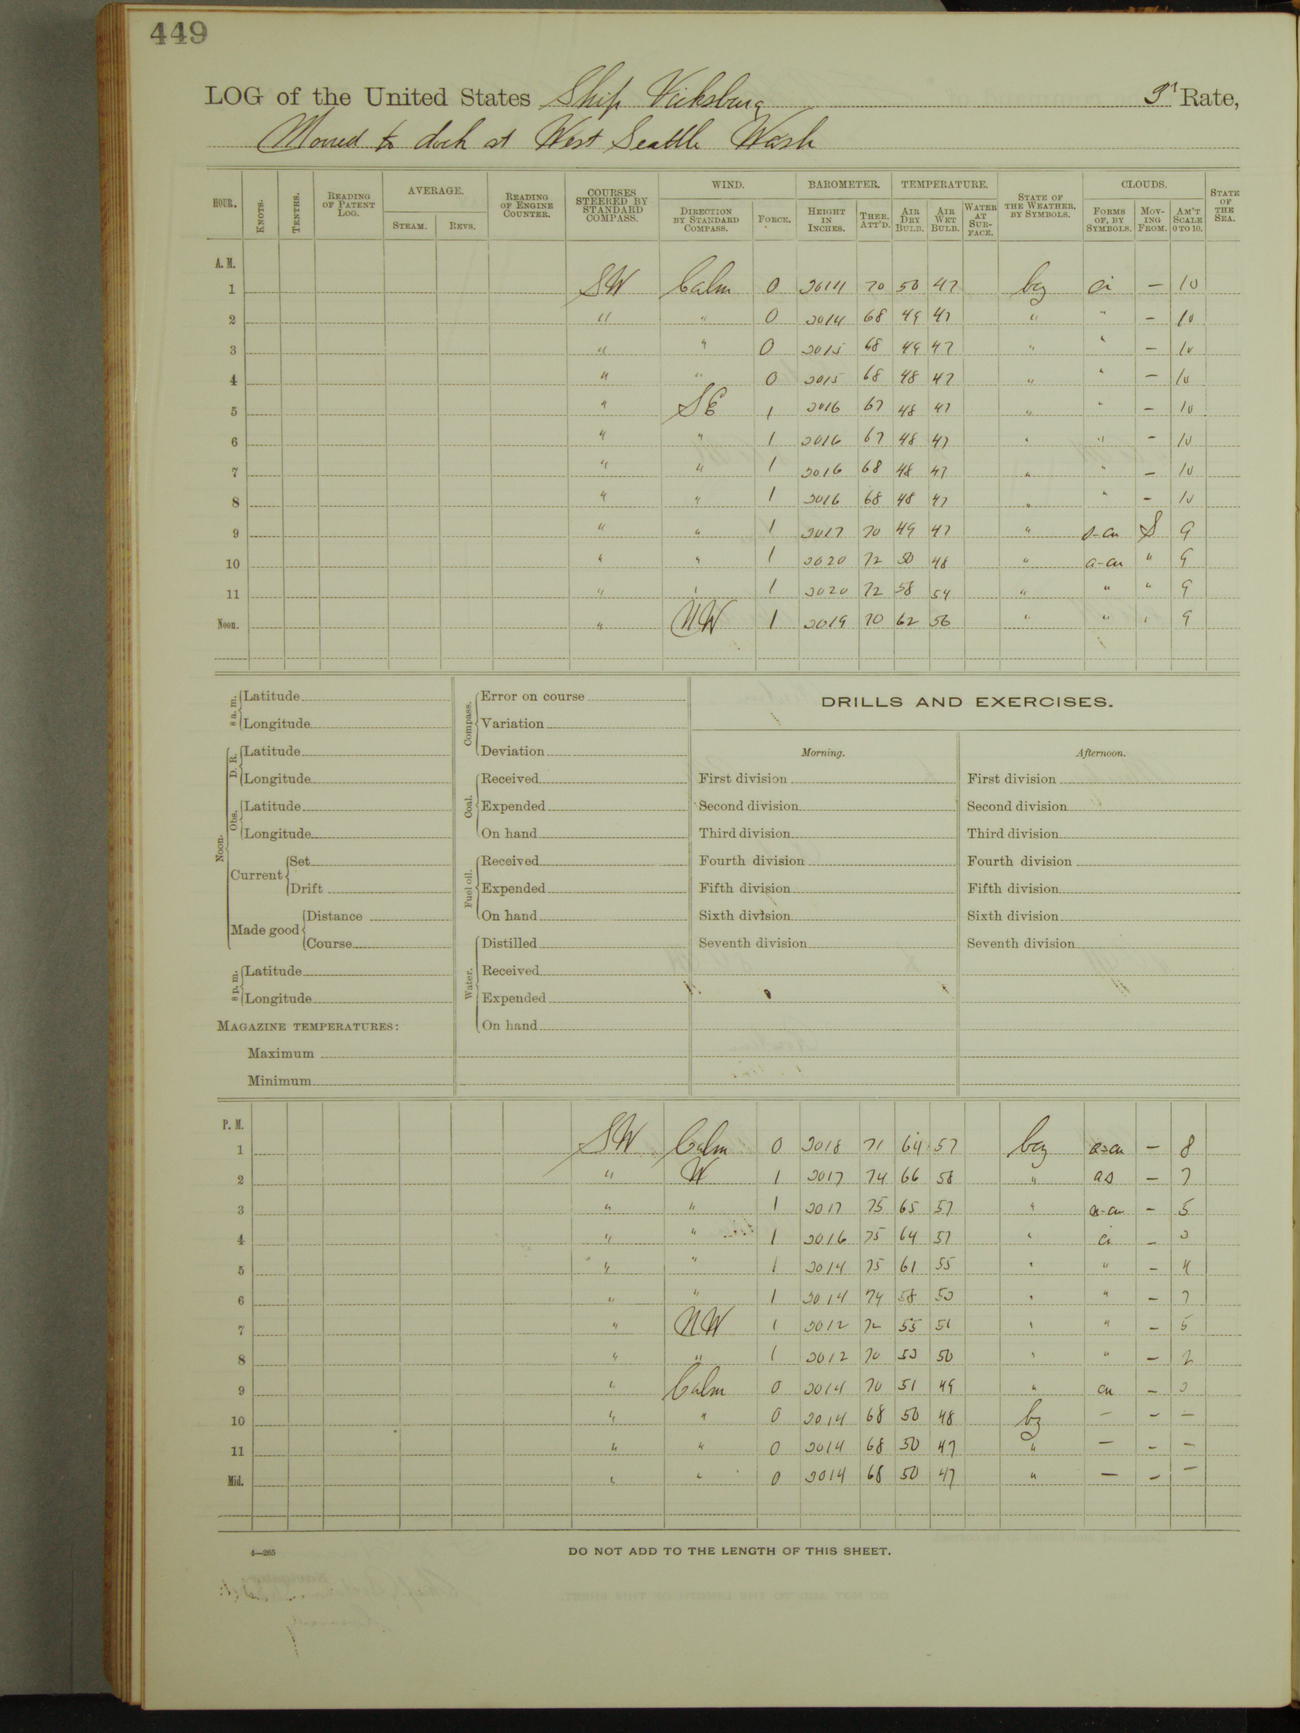 449
LOG of the United States Ship Vicksburg 3d Rate,
Moored to dock at West Seattle Wash
HOUR. KNOTS. TENTHS. READING OF PATENT LOG. AVERAGE. STEAM. REVS. READING OF ENGINE COUNTER. COURSES STEERED BY STANDARD COMPASS. WIND. DIRECTION BY STANDARD COMPASS. FORCE. BAROMETER. HEIGHT IN INCHES. THER. ATT'D. TEMPERATURE. AIR DRY BULB. AIR WET BULB. WATER AT SURFACE. STATE OF THE WEATHER, BY SYMBOLS. CLOUDS. FORMS OF, BY SYMBOLS. MOVING FROM. AM'T SCALE 0 TO 10. STATE OF THE SEA.
A. M.
1 SW Calm 0 3014 70 50 47 bcz ci — 10
2 " " 0 3014 68 49 47 " " — 10
3 " " 0 3015 68 49 47 " " — 10
4 " " 0 3015 68 48 47 " " — 10
5 " SE 1 3016 67 48 47 " " — 10
6 " " 1 3016 67 48 47 " " — 10
7 " " 1 3016 68 48 47 " " — 10
8 " " 1 3016 68 48 47 " " — 10
9 " " 1 3017 70 49 47 " s-cu S 9
10 " " 1 3020 72 50 48 " a-cu " 9
11 " " 1 3020 72 58 54 " " " 9
Noon. " NW 1 3019 70 62 56 " " " 9
8 a. m. Latitude
Longitude
Noon. D. R. Latitude
Longitude
Obs. Latitude
Longitude
Current Set
Drift
Made good Distance
Course
8 p. m. Latitude
Longitude
MAGAZINE TEMPERATURES:
Maximum
Minimum
Compass. Error on course
Variation
Deviation
Coal. Received
Expended
On hand
Fuel oil. Received
Expended
On hand
Water. Distilled
Received
Expended
On hand
DRILLS AND EXERCISES.
Morning. Afternoon.
First division First division
Second division Second division
Third division Third division
Fourth division Fourth division
Fifth division Fifth division
Sixth division Sixth division
Seventh division Seventh division
P. M.
1 SW Calm 0 3018 71 64 57 bcz a-cu — 8
2 " W 1 3017 74 66 58 " as — 7
3 " " 1 3017 75 65 57 " a-cu — 5
4 " " 1 3016 75 64 57 " ci — 3
5 " " 1 3014 75 61 55 " " — 4
6 " " 1 3014 74 58 53 " " — 7
7 " NW 1 3012 72 55 51 " " — 5
8 " " 1 3012 70 53 50 " " — 2
9 " Calm 0 3014 70 51 49 " cu — 3
10 " " 0 3014 68 50 48 bz — — —
11 " " 0 3014 68 50 47 " — — —
Mid. " " 0 3014 68 50 47 " — — —
4—265
DO NOT ADD TO THE LENGTH OF THIS SHEET.